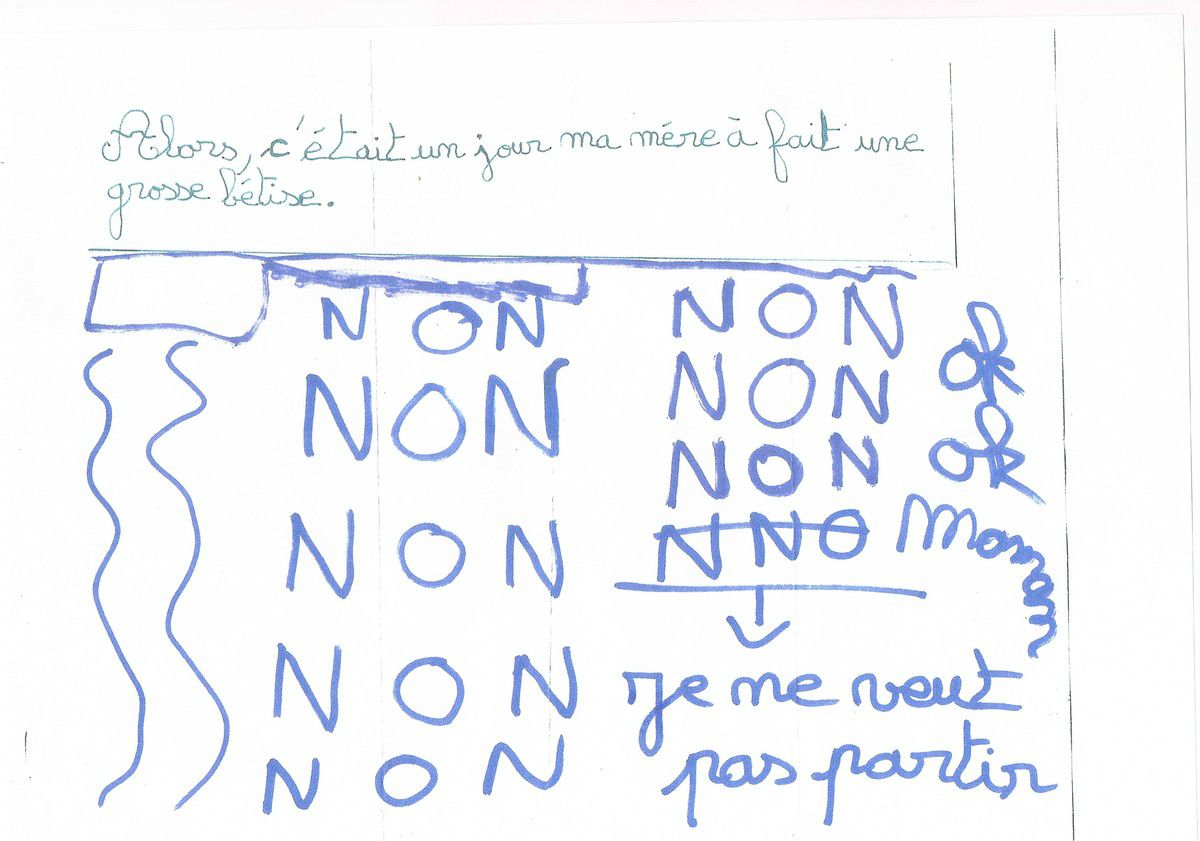 Alors, c'était un jour ma mére à fait une
grosse bétise.
NON
NON
NON
NON
NON
NON
NON
NON
NNO
je ne veut
pas partir
ok
ok
Maman